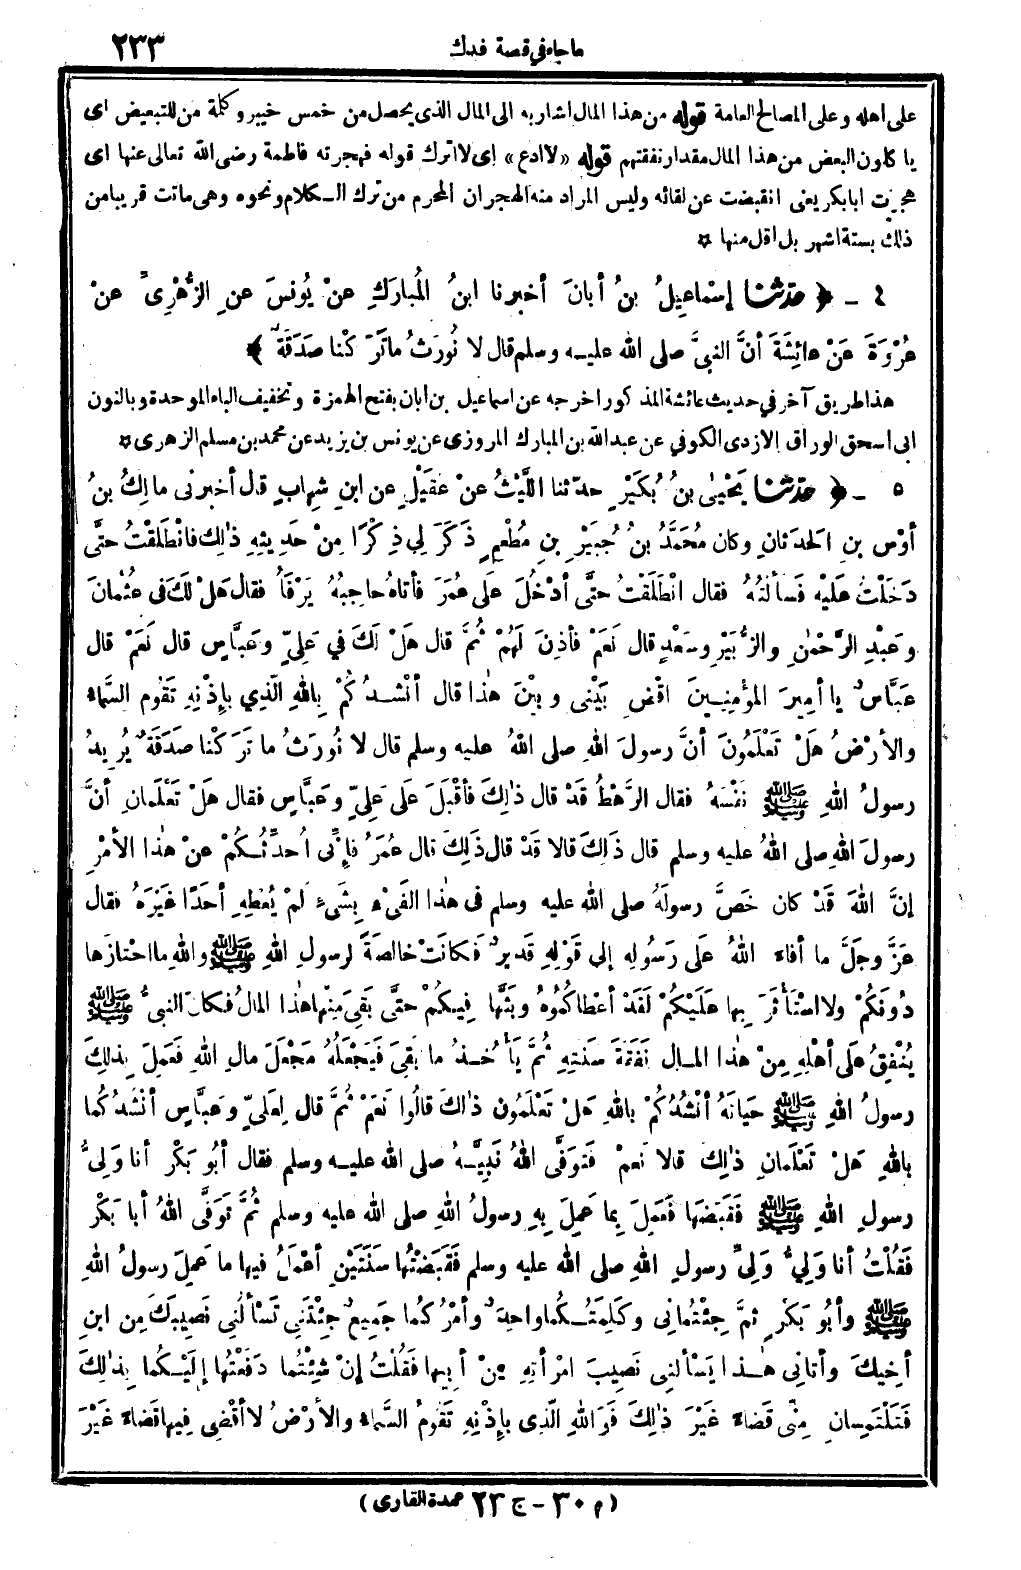 ما جاء في قصة فدك ٢٣٣
على اهله وعلى المصالح العامة قوله من هذا المال اشار به الى المال الذى يحصل من خمس خيبر وكلمة من للتبعيض اى
يا كلون البعض من هذا المال مقدار نفقتهم قوله «لا ادع» اى لا اترك قوله فهجرته فاطمة رضى الله تعالى عنها اى
هجرت ابابكر يعنى انقبضت عن لقائه وليس المراد منه الهجران المحرم من ترك الـكلام ونحوه وهى ماتت قريبا من
ذلك بستة اشهر بل اقل منها ✡
٤ ـ ﴿ حدثنا إسْماعِيلُ بنُ أبانَ أخبرنا ابنُ المُبارَكِ عنْ يُونسَ عنِ الزُّهْرِىِّ عنْ
عُرْوَةَ عَنْ عائِشَةَ أنَّ النبىَّ صلى الله عليـه وسلم قال لا نُورَثُ ماتَرَكْنا صَدَقَةٌ ﴾
هذا طريق آخر في حديث عائشة المذكور اخرجه عن اسماعيل بن ابان بفتح الهمزة وتخفيف الباء الموحدة وبالنون
ابى اسحق الوراق الازدى الكوفي عن عبدالله بن المبارك المروزى عن يونس بن يزيد عن محمد بن مسلم الزهرى ✡
٥ ـ ﴿ حدثنا يَحْيىٰ بنُ بُكَيْرٍ حدّثنا اللَّيْثُ عنْ عُقَيْلٍ عنِ ابنِ شِهابٍ قال أخبرنى مالِكُ بنُ
أوْسِ بنِ الحَدثانِ وكان مُحَمَّدُ بنُ جُبَيْرِ بنِ مُطْعِمٍ ذَكَرَ لِي ذِكْرًا مِنْ حَدِيثِهِ ذٰلِكَ فانْطَلَقْتُ حتَّى
دَخَلْتُ عَلَيْهِ فَسألْتُهُ فقال انْطَلَقْتُ حتَّى أدْخُلَ عَلى عُمَرَ فأتاهُ حاجِبُهُ يَرْفأُ فقال هَلْ لَكَ فى عُثْمانَ
وَعَبْدِ الرَّحْمٰنِ والزُّبَيْرِ وسَعْدٍ قال نَعَمْ فأذِنَ لَهُمْ ثُمَّ قال هَلْ لَكَ في عَلِيٍّ وعَبَّاسٍ قال نَعَمْ قال
عَبَّاسٌ يا أمِيرَ المُؤْمِنِـينَ اقْضِ بَيْنى وبيْنَ هٰذا قال أنْشـدُكُمْ بِاللهِ الَّذِي بِإذْنِهِ تَقُوم السَّماء
والأرْضُ هَلْ تَعْلَمُونَ أنَّ رسولَ اللهِ صلى اللهُ عليه وسلم قال لا نُورَثُ ما تَرَكْنا صَدَقَةٌ يُرِيدُ
رسولُ اللهِ ﷺ نَفْسَهُ فقال الرَّهْطُ قَدْ قال ذٰلِكَ فأقْبَلَ عَلى عَلِيٍّ وعَبَّاسٍ فقال هَلْ تَعْلَمانِ أنَّ
رسولَ اللهِ صلى اللهُ عليه وسلم قال ذٰلِكَ قالا قَدْ قال ذٰلِكَ قال عُمَرُ فإنِّى أُحدِّثُـكُمْ عنْ هٰذا الأمْرِ
إنَّ اللهَ قَدْ كان خَصَّ رسولَهُ صلى الله عليه وسلم فى هٰذا الفَىْءِ بِشَىْءٍ لَمْ يُعْطِهِ أحَدًا غَيْرَهُ فقال
عَزَّ وجَلَّ ما أفاء اللهُ عَلى رَسُولِهِ إلى قَوْلِهِ قَدِيرٌ فَكانَتْ خالِصَةً لرسولِ اللهِ ﷺ واللهِ ما احْتازَها
دُونَكُمْ ولا اسْتَأْثَرَ بِها عَلَيْكُمْ لَقَدْ أعْطاكُمُوهُ وبَثَّها فِيكُمْ حتَّى بَقِيَ مِنْها هٰذا المالُ فَكانَ النبىُّ ﷺ
يُنْفِقُ عَلى أهْلِهِ مِنْ هٰذا المـالِ نَفَقَةَ سَنَتِهِ ثُمَّ يَأْخُـذُ ما بَقِيَ فَيَجْعَلُهُ مَجْعَلَ مالِ اللهِ فَعَمِلَ بِذٰلِكَ
رسولُ اللهِ ﷺ حَياتَهُ أنْشُدُكُمْ بِاللهِ هَلْ تَعْلَمُون ذٰلِكَ قالُوا نَعَمْ ثُمَّ قال لِعَلِيٍّ وعَبَّاسٍ أنْشُدُكُما
بِاللهِ هَلْ تَعْلَمانِ ذٰلِكَ قالا نَعمْ فَتَوَفَّى اللهُ نَبِيَّـهُ صلى الله عليـه وسلم فقال أبُو بَكْر أنا وَلِيُّ
رسولِ اللهِ ﷺ فَقَبَضَها فَعَمِلَ بِما عَمِلَ بِهِ رسولُ اللهِ صلى الله عليه وسلم ثُمَّ تَوَفَّى اللهُ أبا بَكْرٍ
فَقُلْتُ أنا وَلِيُّ وَلِيِّ رسولِ اللهِ صلى الله عليه وسلم فَقَبَضْتُها سَنَتَيْنِ أعْمَلُ فيها ما عَمِلَ رسولُ اللهِ
ﷺ وأبُو بَكْرٍ ثمَّ جِئْتُمانِى وكَلِمَتُـكُما واحِدَةٌ وأمْرُكُما جَمِيعٌ جِئْتَنِى تَسْألُنى نَصِيبَكَ مِن ابنِ
أخِيكَ وأتانِي هٰـذا يَسْألنِى نَصِيبَ امْرأتِهِ مِنْ أبِيها فَقُلْتُ إنْ شِئْتُما دَفَعْتُها إلَيْـكُما بِذٰلِكَ
فَتَلْتَمِسانِ مِنِّى قَضاءً غَيْرَ ذٰلِكَ فَوَاللهِ الَّذى بِإذْنِهِ تَقُومُ السَّماءُ والأرْضُ لا أقْضِى فِيها قَضاءً غَيْرَ
(م ٣٠ ـ ج ٢٣ عمدة القارى)